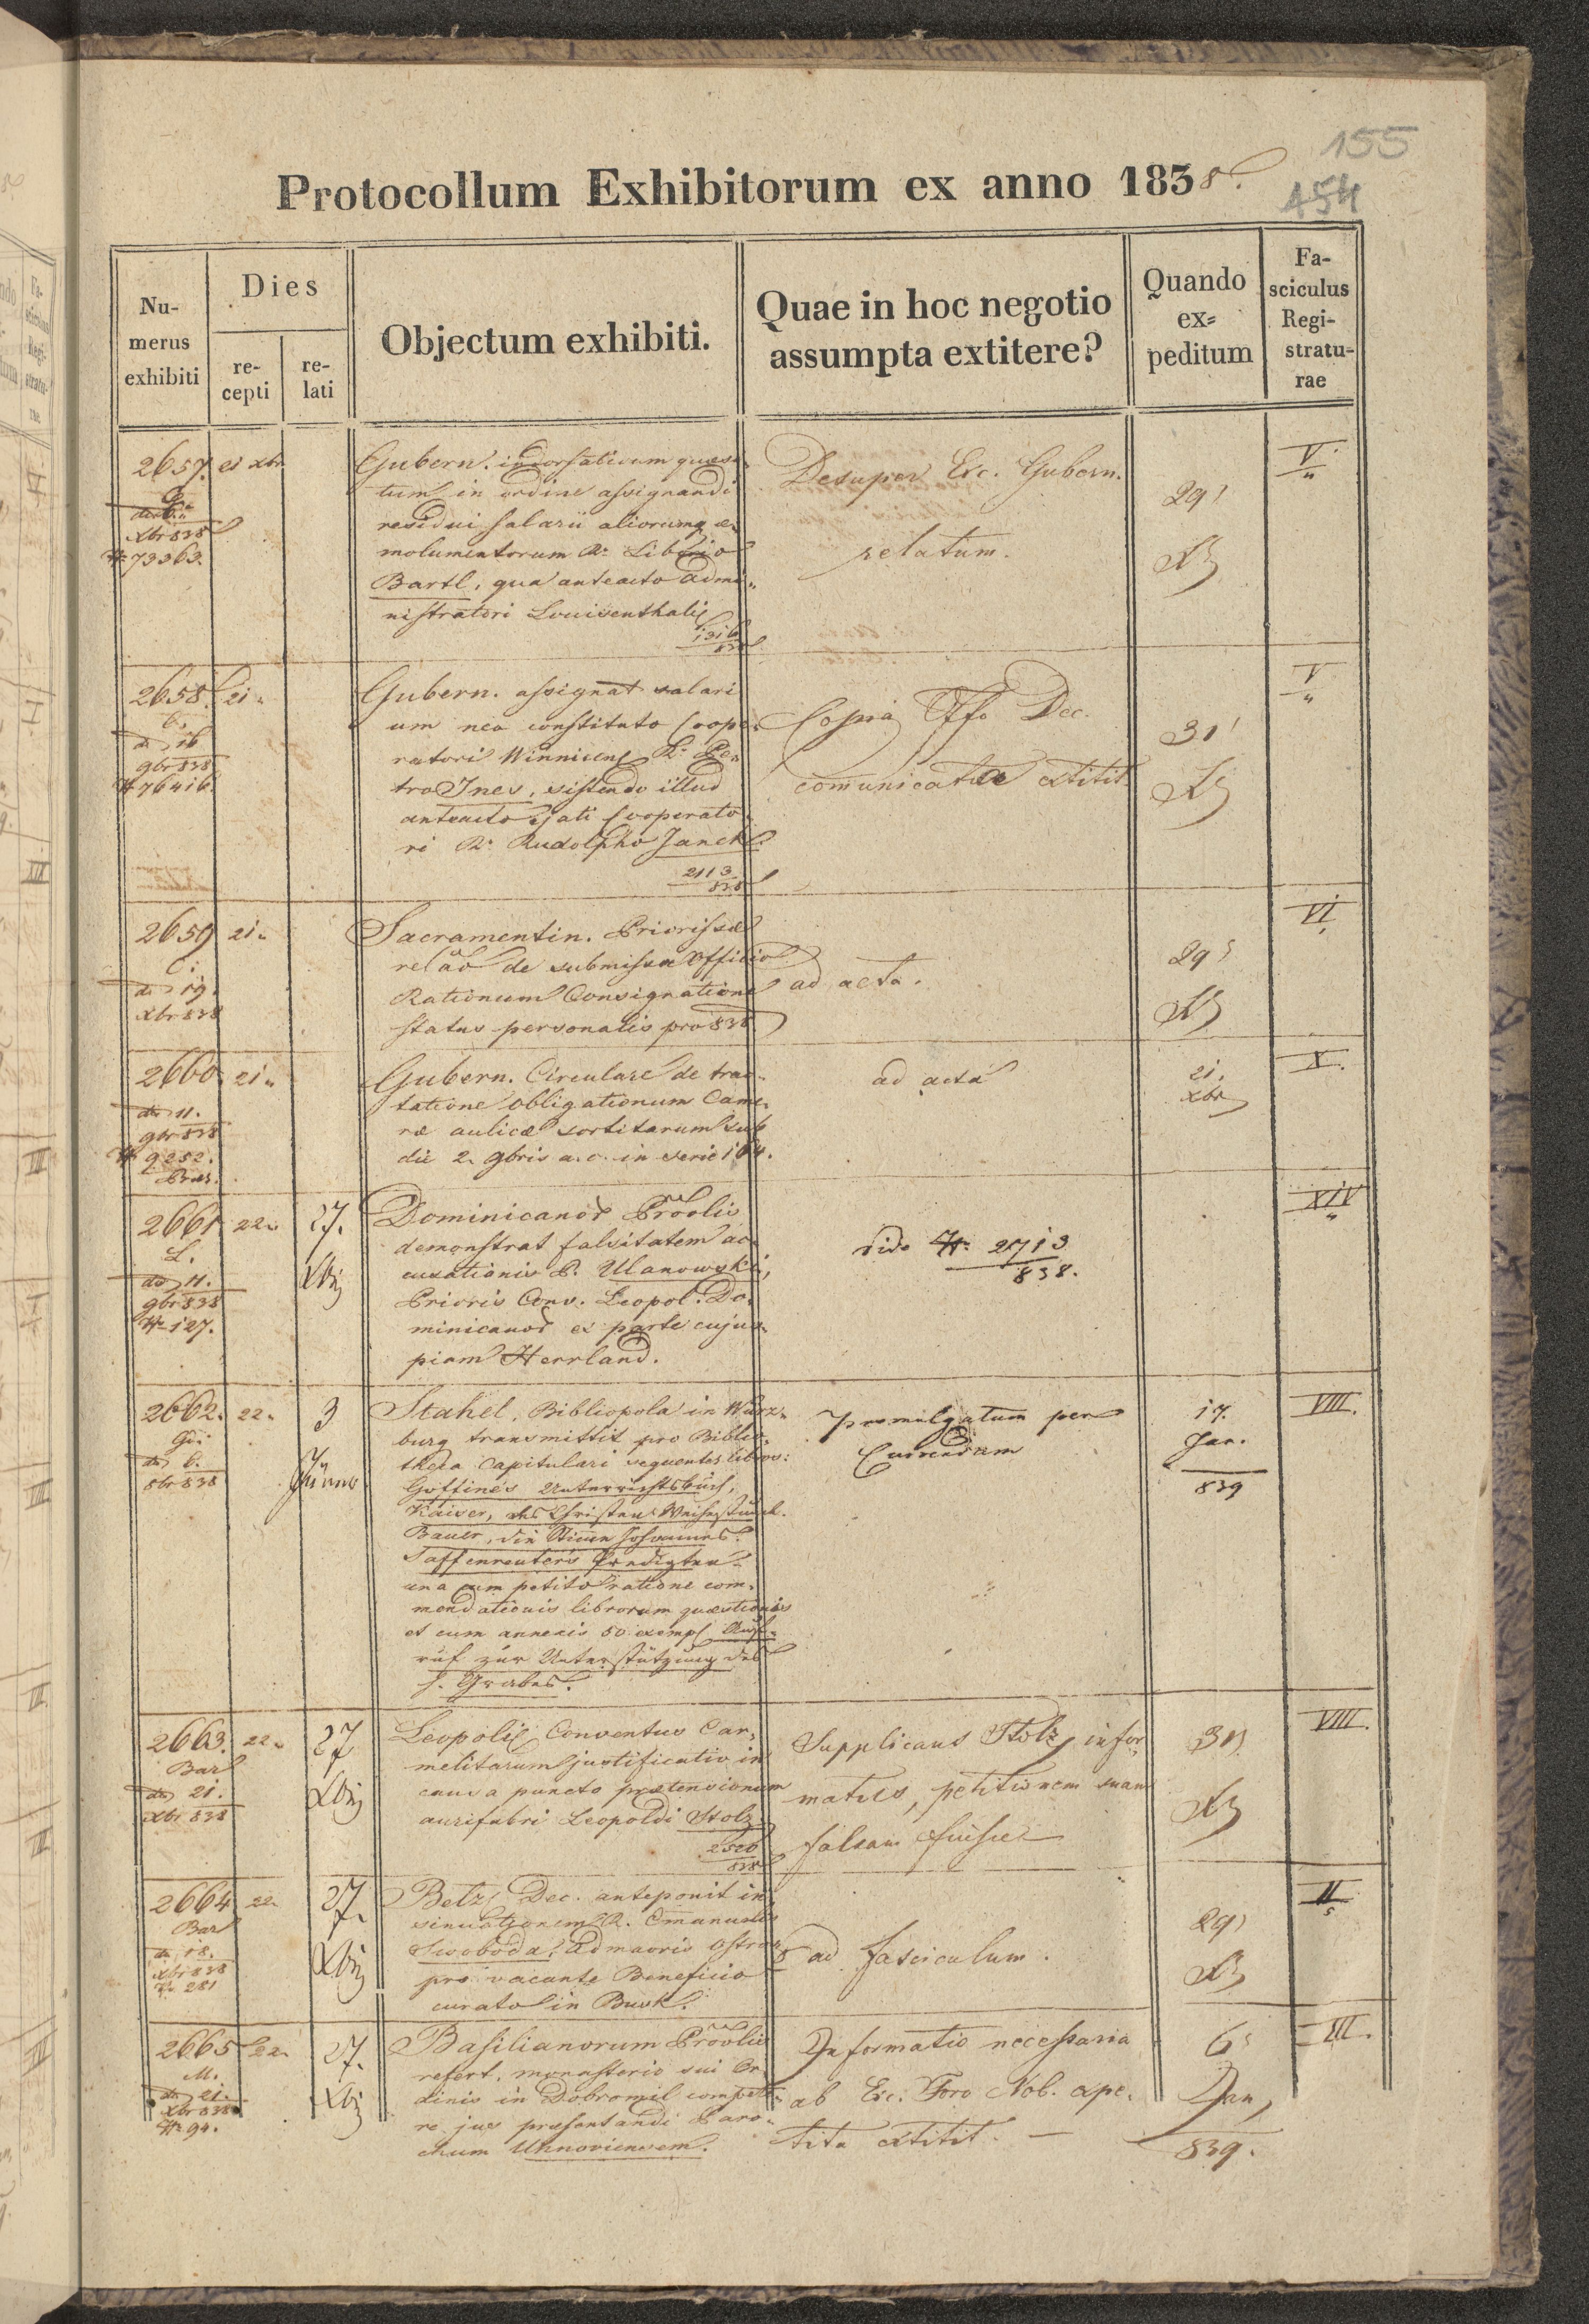 155
Protocollum Exhibitorum ex anno 1838.
154
Nu-
merus
exhibiti
Dies
re-
cepti
re-
lati
Objectum exhibiti.
Quae in hoc negotio
assumpta extitere?
Quando
ex=
peditum
Fa-
sciculus
Regi-
stratu-
rae
2657. 21 xbr
xbr 838
73363.
Gubern. indorsaticum quaesi-
tum in ordine assignandi
residui salarii aliorumq e-
molumentorum R. Liborio
Bartl, qua anteacto admi-
nistratori Louisenthali
1316
838
Desuper Exc. Gubern.
relatum.
29
V.
2658. 21.
16
9br 838
76416.
Gubern. assignat salari
um neo constituto Coope-
ratori Winnicens R. Pe-
tro Ines, sistendo illud
anteacto ejati Cooperato-
ri R. Rudolpho Janek.
2113
838
Copia Offo Dec.
comunicata extitit.
31
V
2659 21.
19.
xbr 838
Sacramentin. Priorissa
relaõ de submissa Officio
Rationum Consignatione
status personalis pro 838
ad acta.
29
VI.
2660. 21.
11.
9br 838
9252.
Gubern. Circulare de trac-
tatione obligationum Came-
rae aulicae sortitarum sub
die 2. 9bris a. c. in serie 164.
ad acta
21.
xbr
X.
2661 22. 27.
L. Xbr
11.
9br 838
127.
Dominicanor Proõlis
demonstrat falsitatem ac-
cusationis P. Ulanowski,
Prioris Conv. Leopol. Do-
minicanor ex parte cujus-
piam Herrland.
vide N. 2713
838.
XIV
2662. 22. 3
6.
8br 838
Stahel, Bibliopola in Würz-
burg transmittit pro Biblio-
theca Capitulari sequentes libros:
Goffine's Unterrichtsbuch,
Kaiser, des Christen
Bauer, die Stimme Johannes.
Predigten
una cum petito ratione com-
mendationis librorum quaestionis
et cum annexis 50 exempl Auf-
ruf zur Unterstützung des
h. Grabes.
promulgatum per
Currendam
17.
Jan.
839
VIII.
2663. 22. 27
21.
xbr 838
Leopoli Conventus Car-
melitarum justificatio in
causa puncto praetensionum
aurifabri Leopoldi Stolz.
838
Supplicans Stolz, infor-
matus, petitionem suam
falsam fuisse
31
VIII.
2664 22. 27.
18.
xbr 838
281
Belz Dec. anteponit in-
sinuationem R. Emanuelis
Swoboda, Admaoris Ostrow
pro vacante Beneficio
curato in Busk.
ad fasciculum.
29
II
2665 22. 27.
M.
21.
xbr 838
94.
Basilianorum Proõlis
refert, monasterio sui Or-
dinis in Dobromil compete-
re jus praesentandi Paro-
chum Uhnoviensem.
Informatio necessaria
ab Exc. Foro Nob. expe-
tita extitit. —
6
Jan
839.
III.